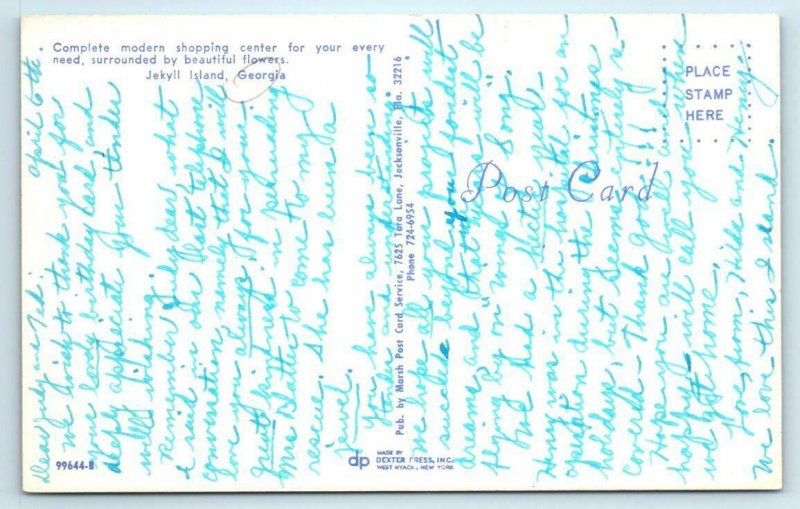 Complete modern shopping center for your every
need, surrounded by beautiful flowers.
Jekyll Island, Georgia
April 6 th
Dear Judy and Ed:
We wish to thank you for
your lovely birthday card and
deeply appreciat your tender
well wishing.
Remember Judy dear, what
I said in our last telephone
conversation, namely that I will
love you always, for your
great kindness in
Mrs Slatter to come to my
rescue. She has been a
Jewel.
You have always been so
tender and understanding.
We hope all your projects will
succeed beyond your fondest
dreams and that you will be
flying by on wings of Song.
We had a quiet visit.
Henry was in the hospital for an
operation during the Christmas
holidays, but seems entirely re-
covered - Thank God!!!!
Hope you are well and
happy - will call you when
we get home.
Love from, Hilda and Henry.
We love this Island.
Pub. by Marsh Post Card Service, 7625 Tara Lane, Jacksonville, Fla. 32216
Phone 724-6954
Post Card
PLACE
STAMP
HERE
99644-B
dp
MADE BY
DEXTER PRESS, INC.
WEST NYACK, NEW YORK